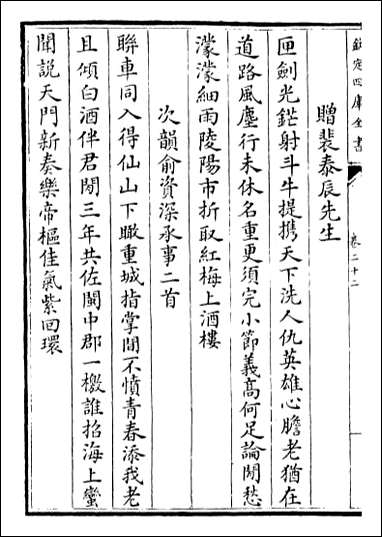 欽定四庫全書
卷二十二
贈裴泰辰先生
匣劍光鋩射斗牛提攜天下洗人仇英雄心膽老猶在
道路風塵行未休名重更須完小節義高何足論閒愁
濛濛細雨陵陽市折取紅梅上酒樓
次韻俞資深承事二首
聯車同入得仙山下瞰重城指掌間不憤青春添我老
且傾白酒伴君閒三年共佐閩中郡一檄誰招海上蠻
聞說天門新奏樂帝樞佳氣紫回環